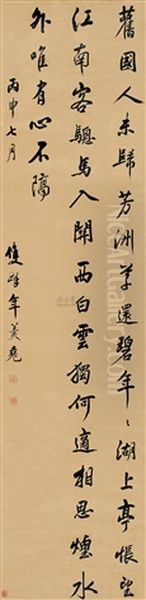 舊國人未歸芳洲草還碧年〻湖上亭悵望
江南客驄馬入關西白雲獨何適相思煙水
外唯有心不隔
丙申七月
雙峰年羹堯